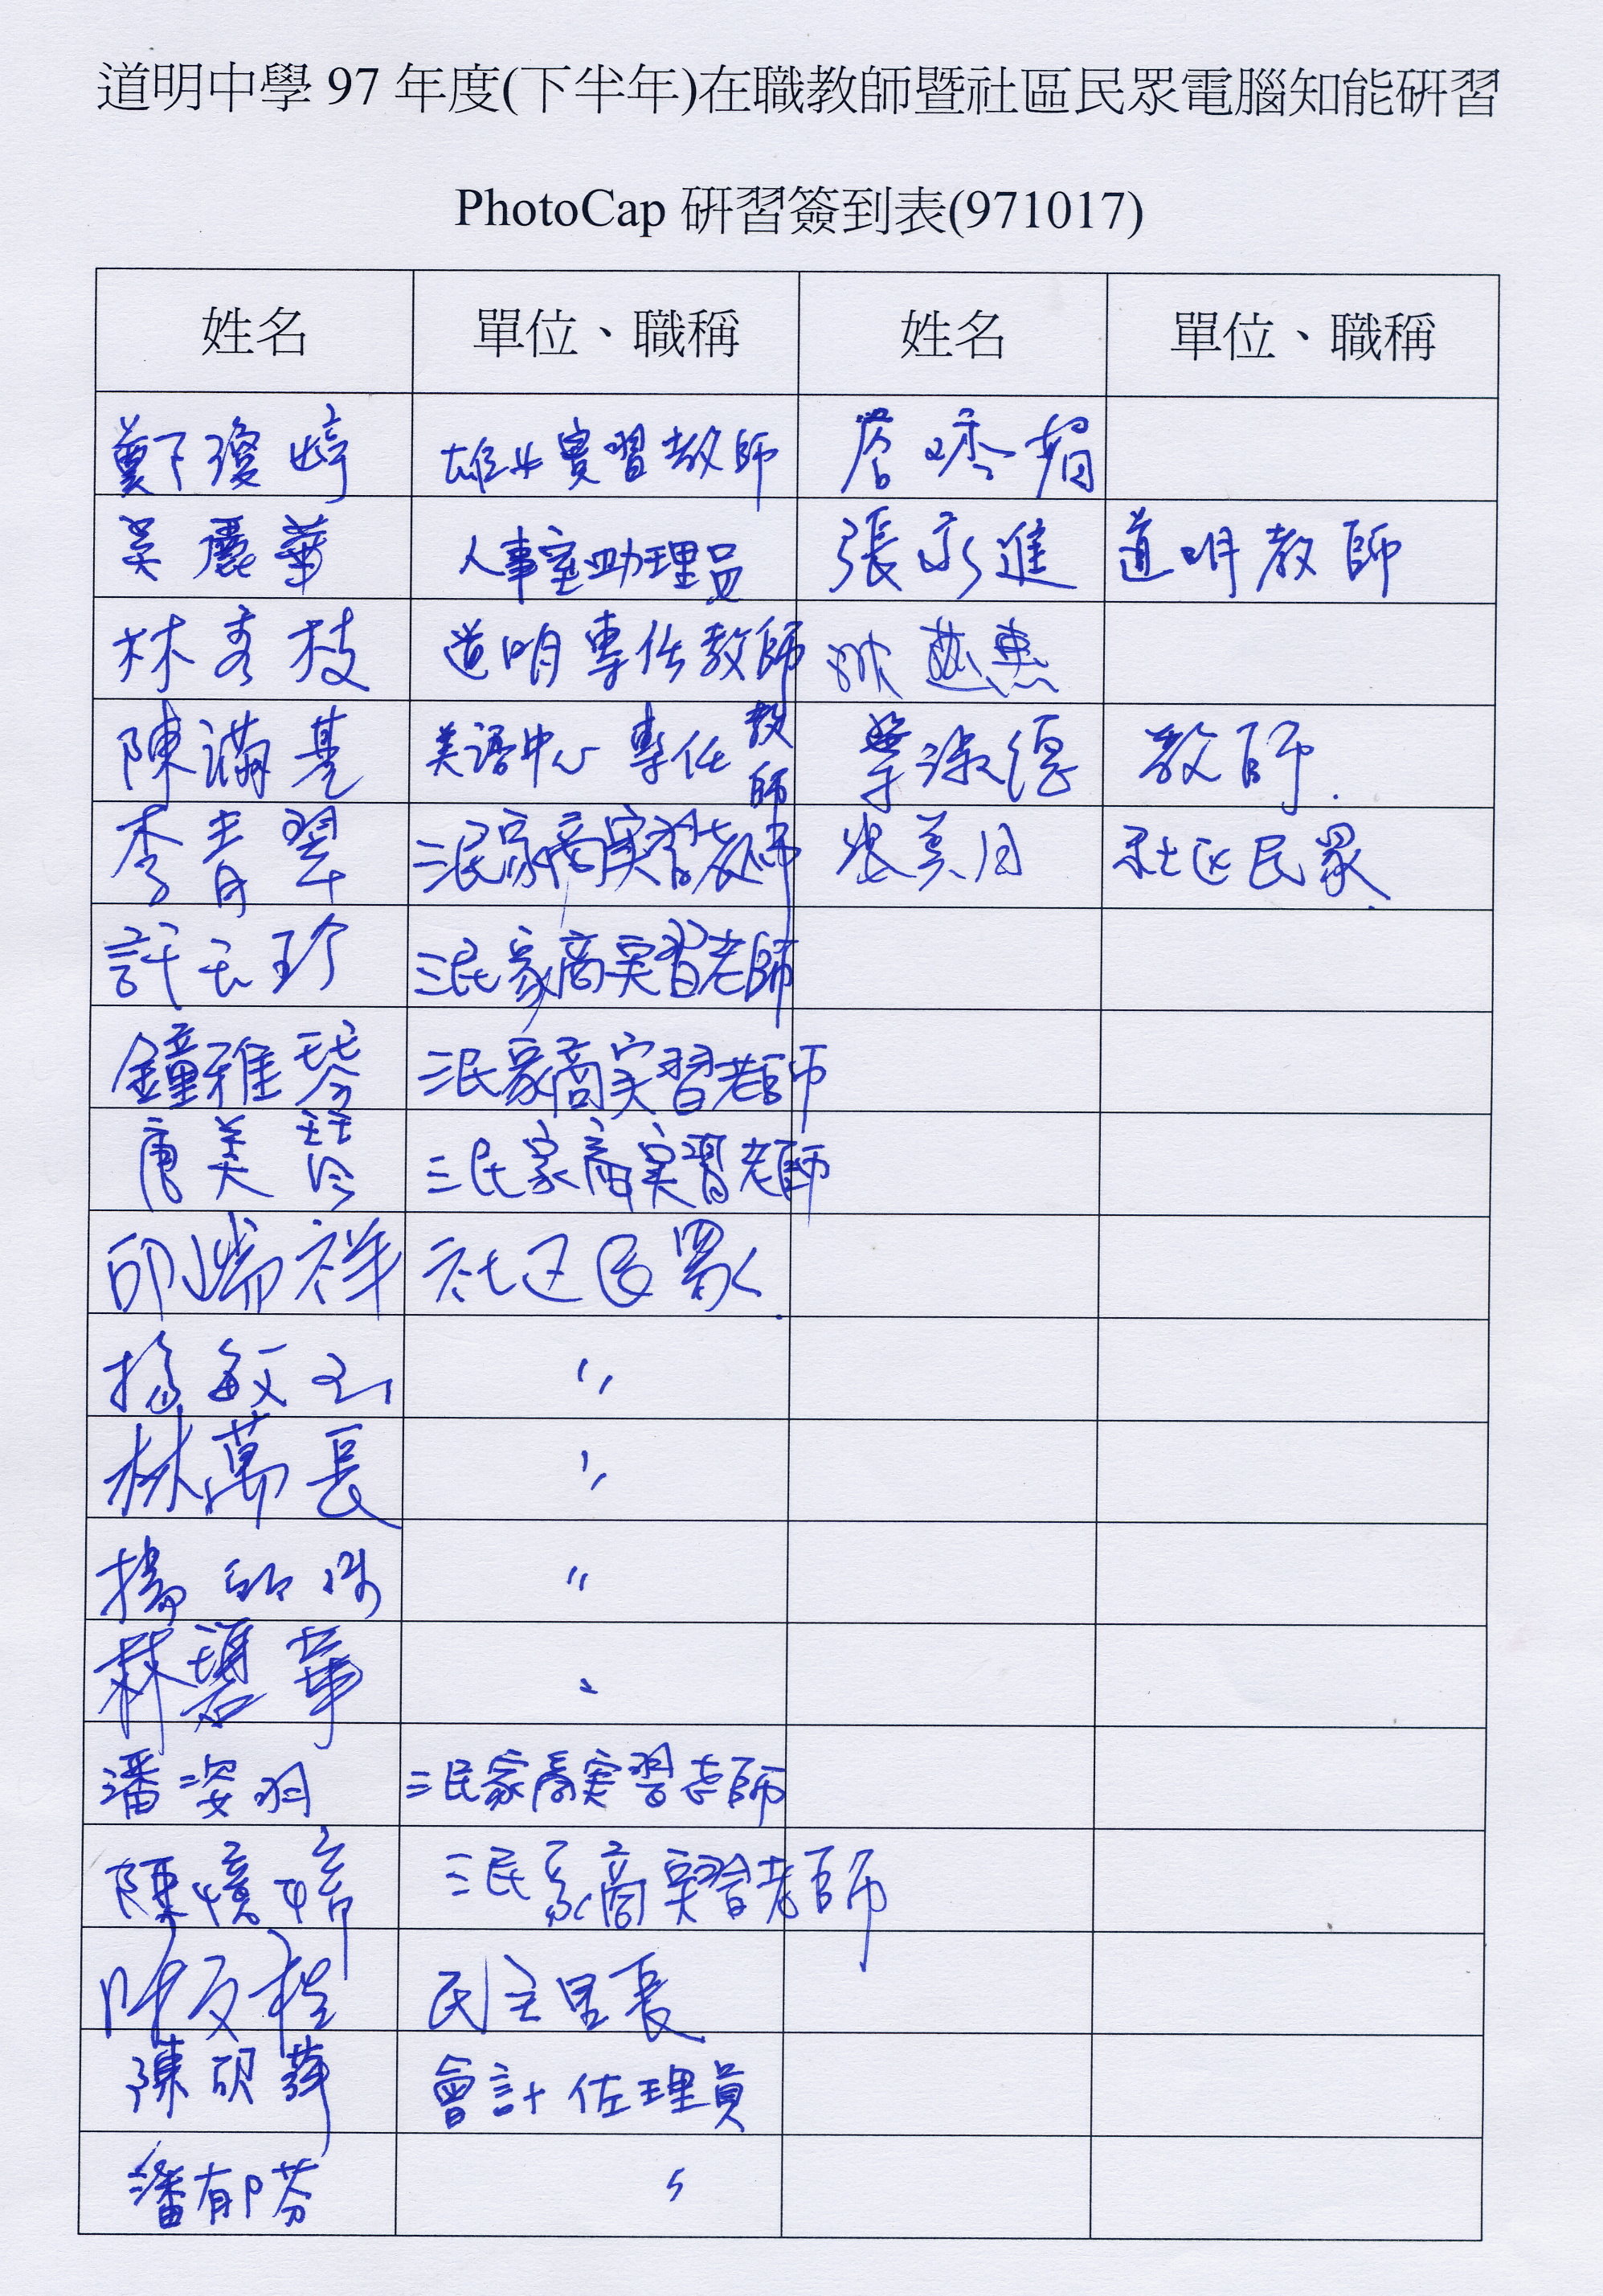 道明中學 97 年度(下半年)在職教師暨社區民眾電腦知能研習
PhotoCap 研習簽到表(971017)
姓名 單位、職稱 姓名 單位、職稱
鄭瓊崎 雄女實習教師 詹 媚
吳麗華 人事室助理員 張永進 道明教師
林秀枝 道明專任教師 惠
陳滿基 美語中心 專任教師 淑 教師.
李青翠 三民家商実習老師 張美月 社区民眾
許玉珍 三民家商実習老師
鐘雅琴 三民家商実習老師
唐美琴 三民家商実習老師
邱瑞祥 社区民眾.
楊敏玉 〃
林萬長 〃
楊 〃
蘇碧華 〃
潘姿羽 三民家商実習老師
陳憶婷 三民家商実習老師
民主里長
陳硯萍 會計佐理員
潘郁芬 〃